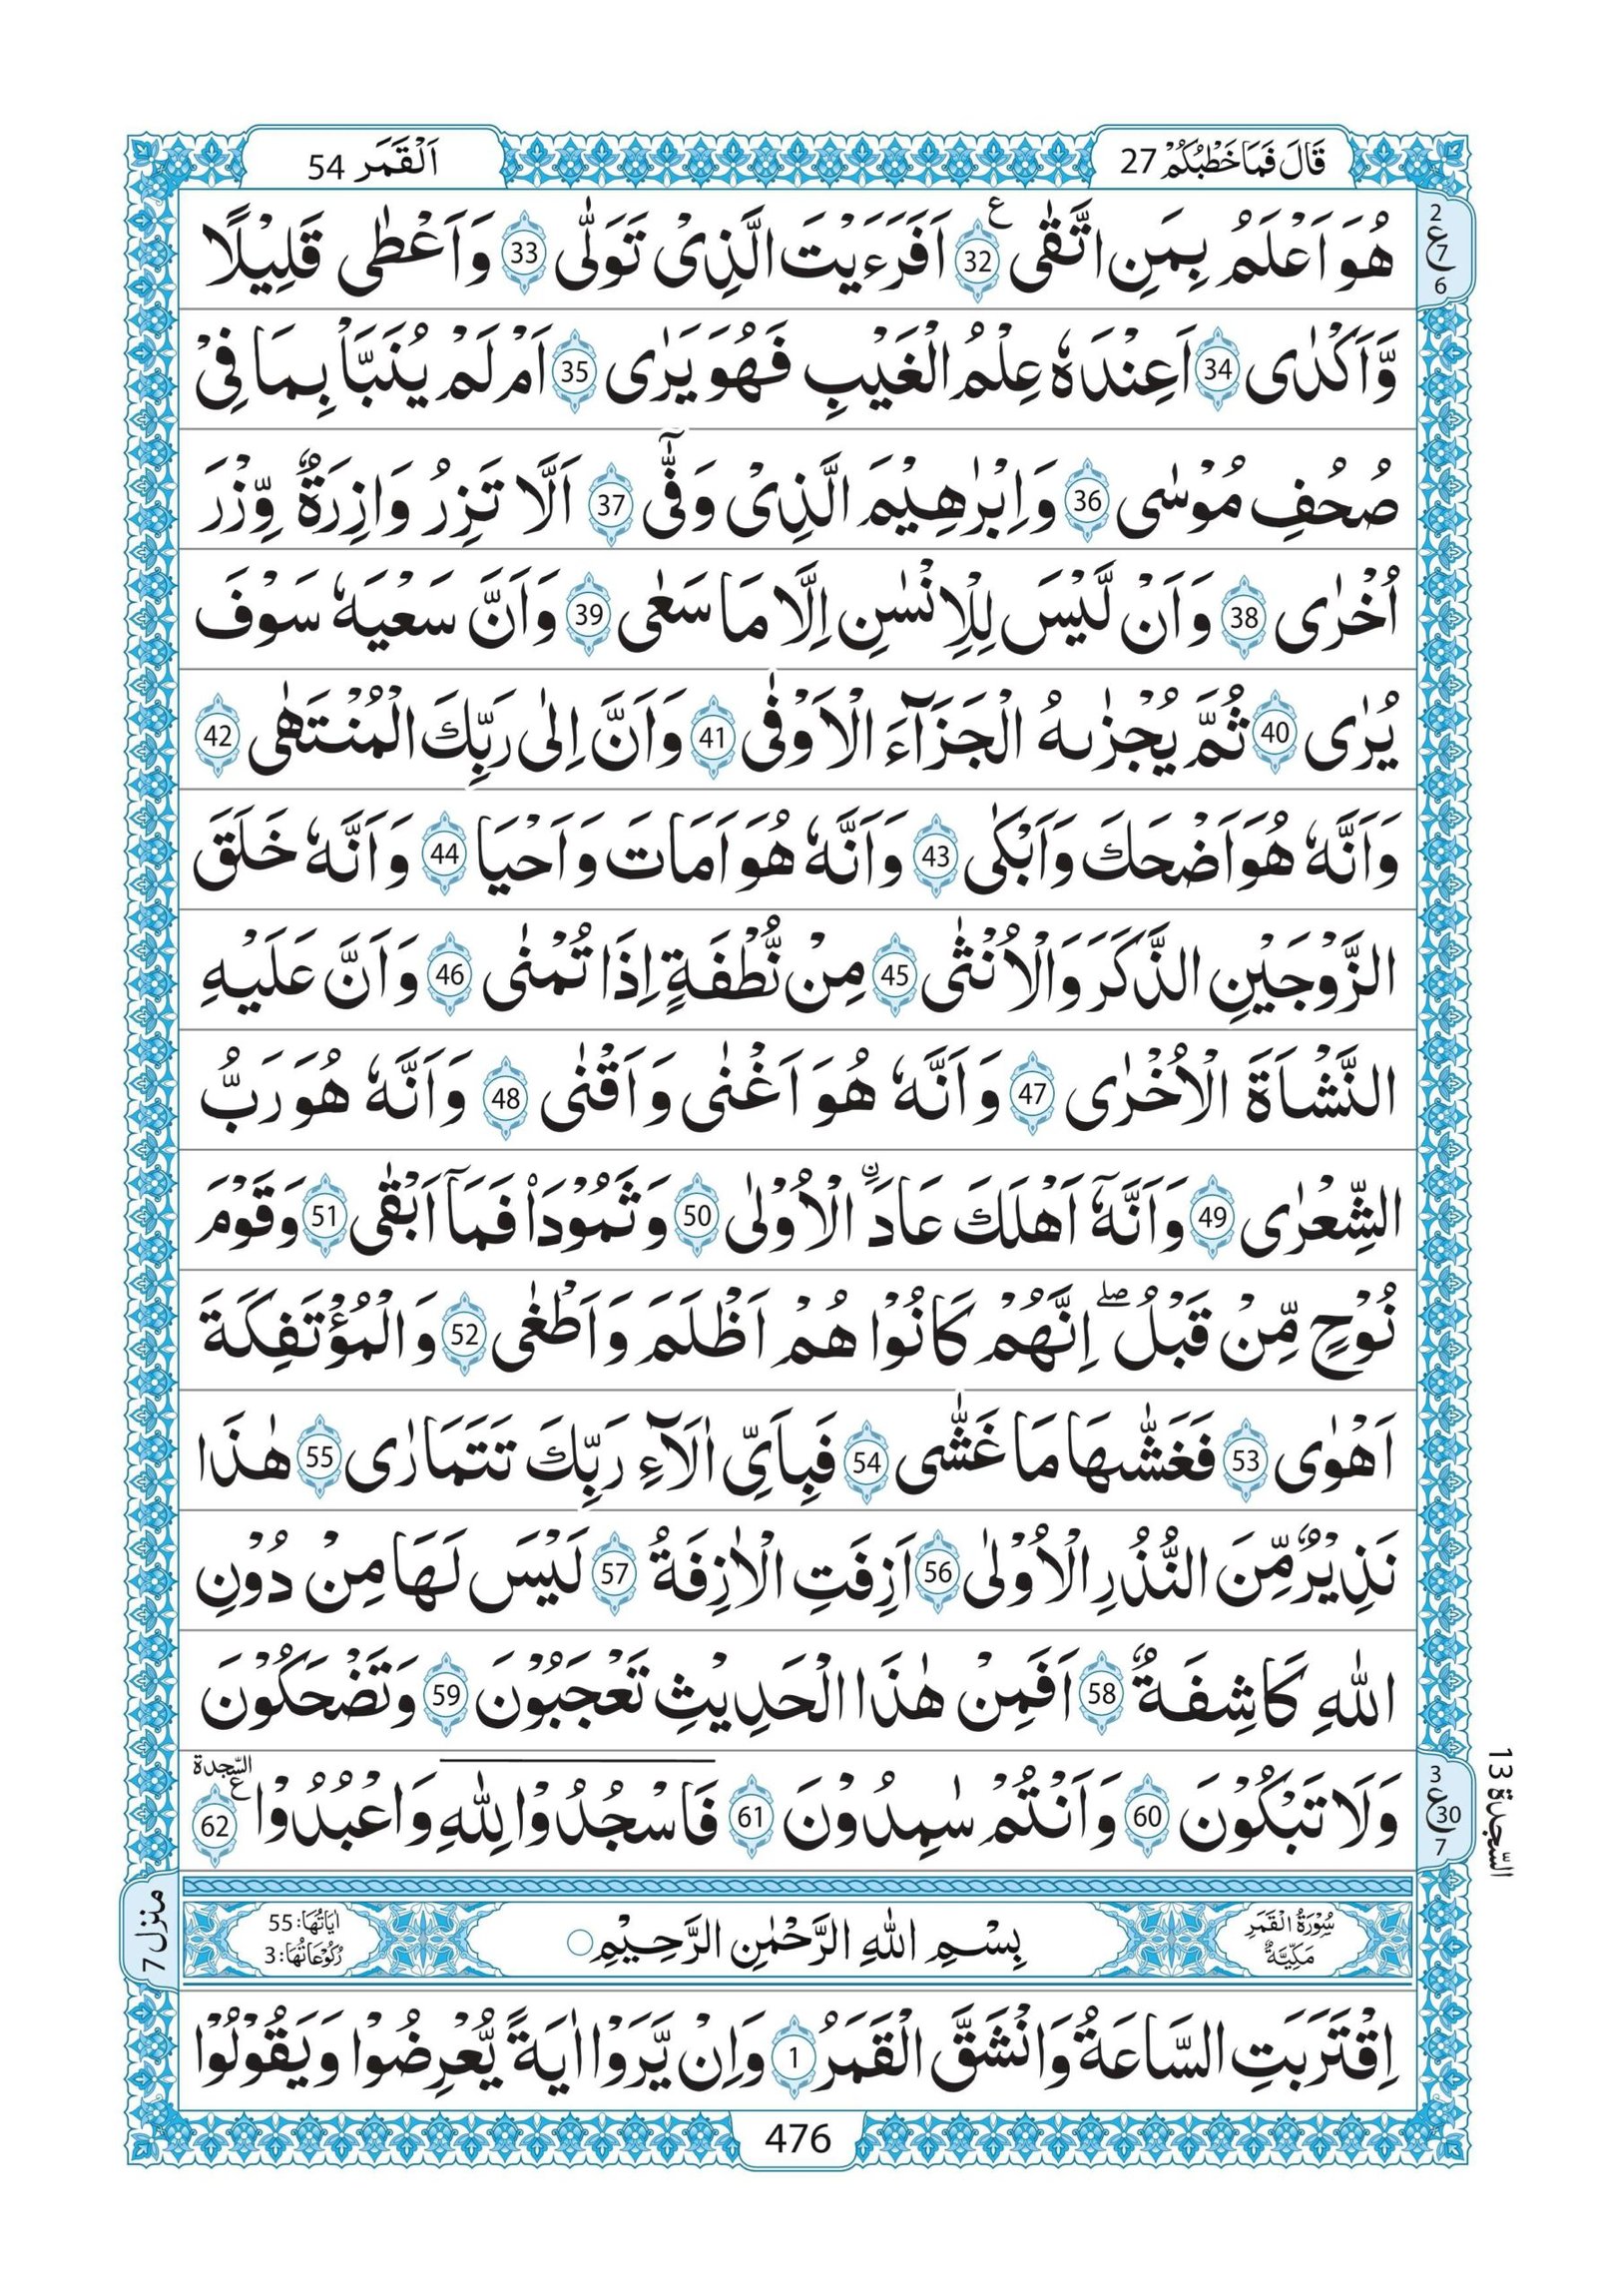 قَالَ فَمَا خَطْبُكُمْ 27
اَلْقَمَر 54
2
ع
7
6
هُوَ اَعْلَمُ بِمَنِ اتَّقٰى ۠ع 32 اَفَرَءَيْتَ الَّذِىْ تَوَلّٰى 33 وَاَعْطٰى قَلِيْلًا
وَّاَكْدٰى 34 اَعِنْدَهٗ عِلْمُ الْغَيْبِ فَهُوَ يَرٰى 35 اَمْ لَمْ يُنَبَّاْ بِمَا فِىْ
صُحُفِ مُوْسٰى 36 وَاِبْرٰهِيْمَ الَّذِىْ وَفّٰٓى 37 اَلَّا تَزِرُ وَازِرَةٌ وِّزْرَ
اُخْرٰى 38 وَاَنْ لَّيْسَ لِلْاِنْسٰنِ اِلَّا مَا سَعٰى 39 وَاَنَّ سَعْيَهٗ سَوْفَ
يُرٰى 40 ثُمَّ يُجْزٰىهُ الْجَزَآءَ الْاَوْفٰى 41 وَاَنَّ اِلٰى رَبِّكَ الْمُنْتَهٰى 42
وَاَنَّهٗ هُوَ اَضْحَكَ وَاَبْكٰى 43 وَاَنَّهٗ هُوَ اَمَاتَ وَاَحْيَا 44 وَاَنَّهٗ خَلَقَ
الزَّوْجَيْنِ الذَّكَرَ وَالْاُنْثٰى 45 مِنْ نُّطْفَةٍ اِذَا تُمْنٰى 46 وَاَنَّ عَلَيْهِ
النَّشْاَةَ الْاُخْرٰى 47 وَاَنَّهٗ هُوَ اَغْنٰى وَاَقْنٰى 48 وَاَنَّهٗ هُوَ رَبُّ
الشِّعْرٰى 49 وَاَنَّهٗٓ اَهْلَكَ عَادَا۟ ۨالْاُوْلٰى 50 وَثَمُوْدَا۟ فَمَآ اَبْقٰى 51 وَقَوْمَ
نُوْحٍ مِّنْ قَبْلُ ۖ اِنَّهُمْ كَانُوْا هُمْ اَظْلَمَ وَاَطْغٰى 52 وَالْمُؤْتَفِكَةَ
اَهْوٰى 53 فَغَشّٰىهَا مَا غَشّٰى 54 فَبِاَىِّ اٰلَآءِ رَبِّكَ تَتَمَارٰى 55 هٰذَا
نَذِيْرٌ مِّنَ النُّذُرِ الْاُوْلٰى 56 اَزِفَتِ الْاٰزِفَةُ 57 لَيْسَ لَهَا مِنْ دُوْنِ
اللّٰهِ كَاشِفَةٌ 58 اَفَمِنْ هٰذَا الْحَدِيْثِ تَعْجَبُوْنَ 59 وَتَضْحَكُوْنَ
وَلَا تَبْكُوْنَ 60 وَاَنْتُمْ سٰمِدُوْنَ 61 فَاسْجُدُوْا لِلّٰهِ وَاعْبُدُوْا ع السّجدة 62
3
ع
30
7
السّجدة 13
منزل 7
سُوْرَةُ الْقَمَرِ
مَكِّيَّةٌ
بِسْمِ اللّٰهِ الرَّحْمٰنِ الرَّحِيْمِ
اٰيَاتُهَا: 55
رُكُوْعَاتُهَا: 3
اِقْتَرَبَتِ السَّاعَةُ وَانْشَقَّ الْقَمَرُ 1 وَاِنْ يَّرَوْا اٰيَةً يُّعْرِضُوْا وَيَقُوْلُوْا
476